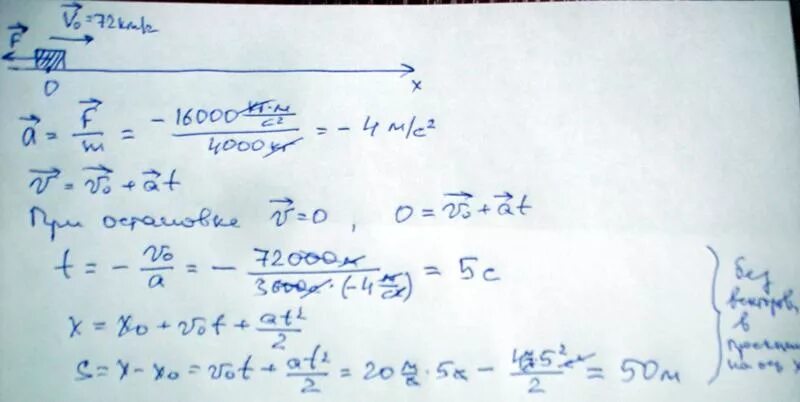 v⃗₀ = 72 км/ч
F⃗
0 x
a⃗ = F⃗/m = (-16000 кг·м/с²)/(4000 кг) = - 4 м/с²
v⃗ = v⃗₀ + a⃗t
При остановке v⃗ = 0 , 0 = v⃗₀ + a⃗t
t = - v₀/a = - 72000 м/(3600 с · (-4 м/с²)) = 5 с
x = x₀ + v₀t + at²/2
S = x - x₀ = v₀t + at²/2 = 20 м/с · 5 с - 4 м/с² · 5² с²/2 = 50 м
без
векторов,
в
проекции
на ось x